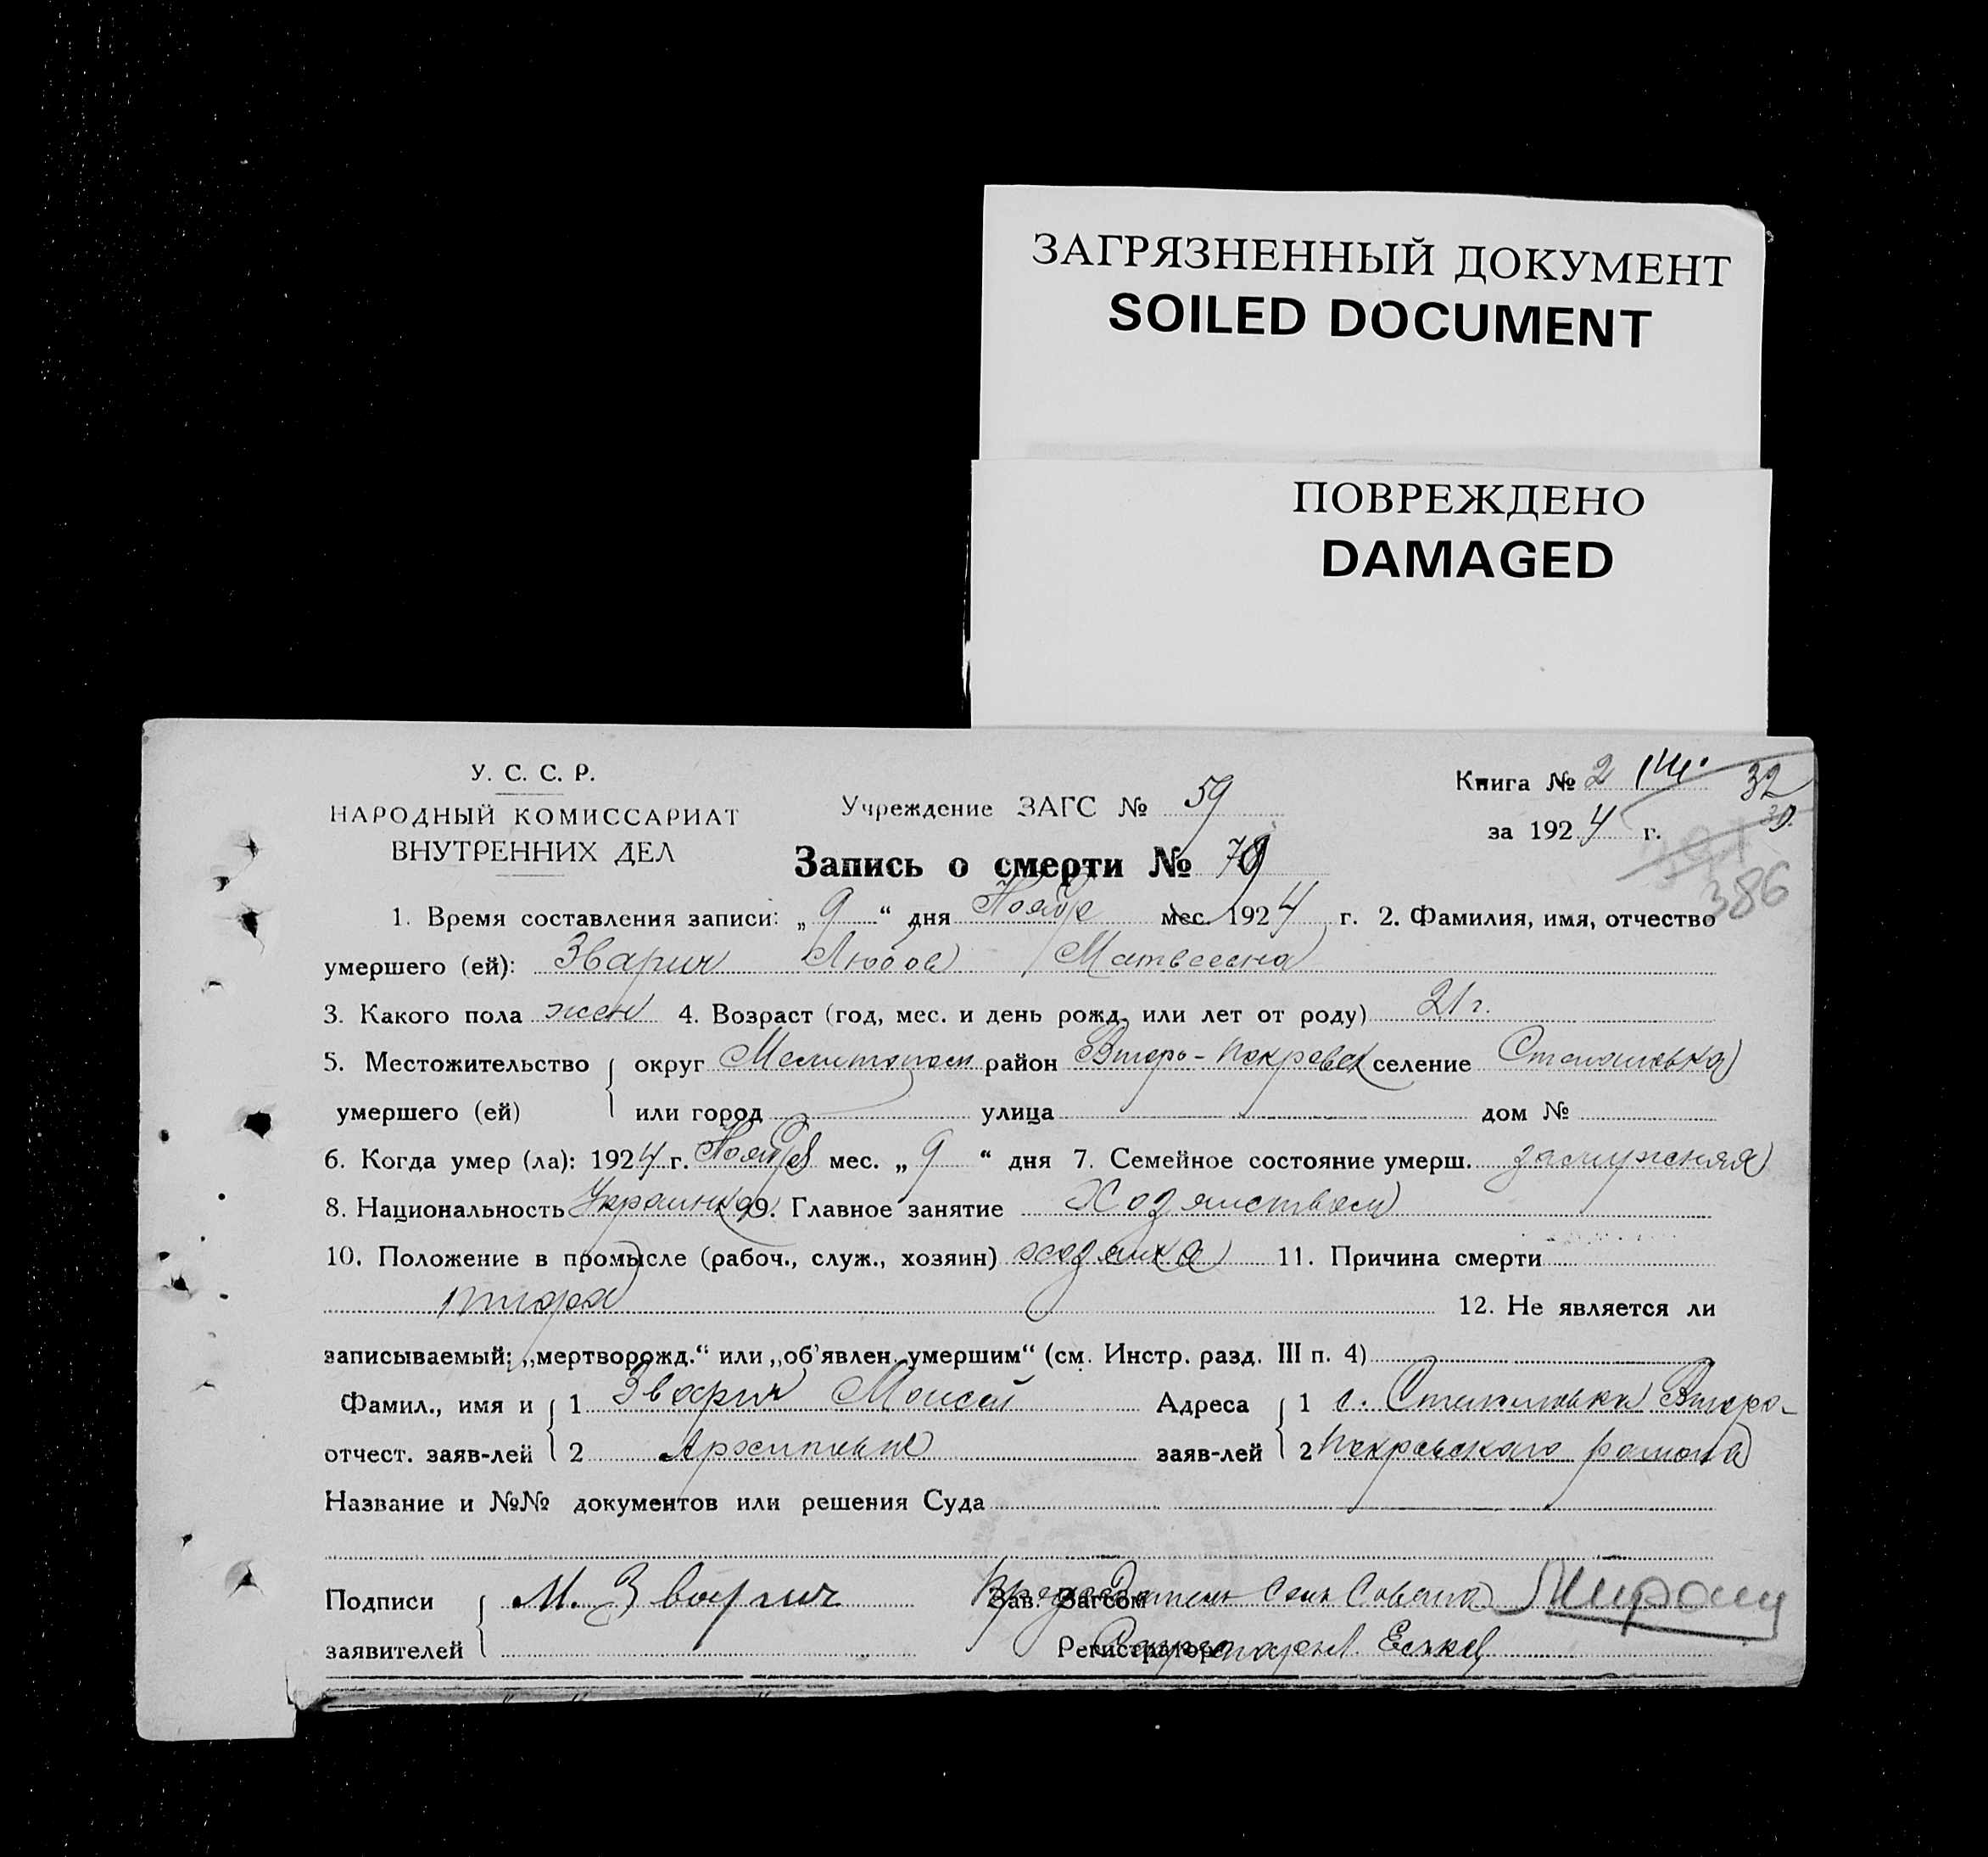 ЗАГРЯЗНЕННЫЙ ДОКУМЕНТ
SOILED DOCUMENT
ПОВРЕЖДЕНО
DAMAGED
У. С. С. Р.
НАРОДНЫЙ КОМИССАРИАТ
ВНУТРЕННИХ ДЕЛ
Учреждение ЗАГС № 59
Книга № 2
32
за 1924 г.
386
Запись о смерти №
1. Время составления записи: „9“ дня Ноября мес. 1924 г. 2. Фамилия, имя, отчество
умершего (ей): Зварич Любов Матвеевна
3. Какого пола жен 4. Возраст (год, мес. и день рожд. или лет от роду) 21 г.
5. Местожительство округ Мелитопол район Второ-Покровск селение
умершего (ей) или город улица дом №
6. Когда умер (ла): 1924 г. Ноября мес. „9“ дня 7. Семейное состояние умерш. замужняя
8. Национальность Украинка 9. Главное занятие Хозяйством
10. Положение в промысле (рабоч., служ., хозяин) хозяйка 11. Причина смерти
12. Не является ли
записываемый: „мертворожд.“ или „об’явлен. умершим“ (см. Инстр. разд. III п. 4)
Фамил., имя и 1 Зварич Моисей Адреса 1 с. Второ-
отчест. заяв-лей 2 Архипович заяв-лей 2 Покровского района
Название и №№ документов или решения Суда
Подписи М. Зварич Зав. Загсом Председатель Сель Совета
заявителей Регистратор Секретарь